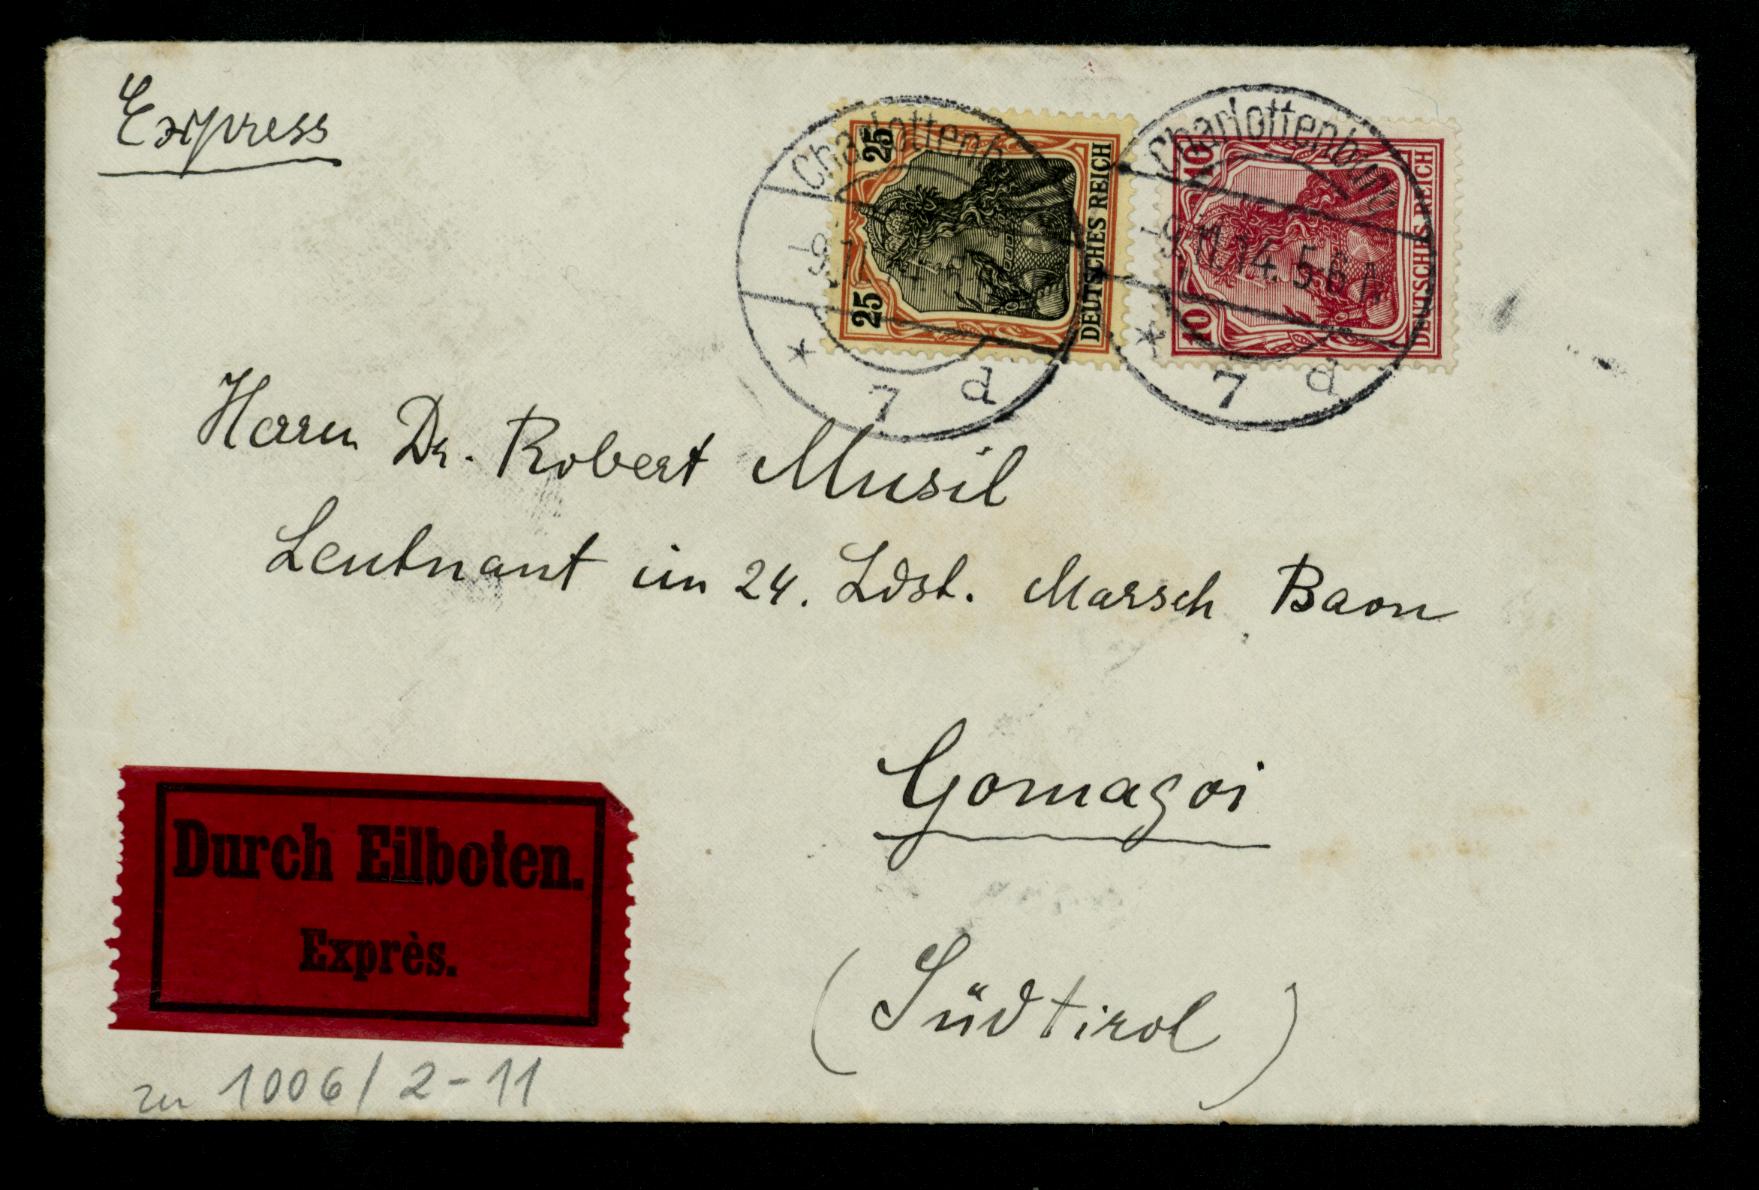 Express
Charlottenb
25
25
DEUTSCHES REICH
* 7 d
Charlottenburg
10
10
DEUTSCHES REICH
-9.11.14. 5-6 N
* 7 d
Herrn Dr. Robert Musil
Leutnant im 24. Ldst. Marsch Baon
Gomagoi
(Südtirol)
Durch Eilboten.
Exprès.
zu 1006/2-11